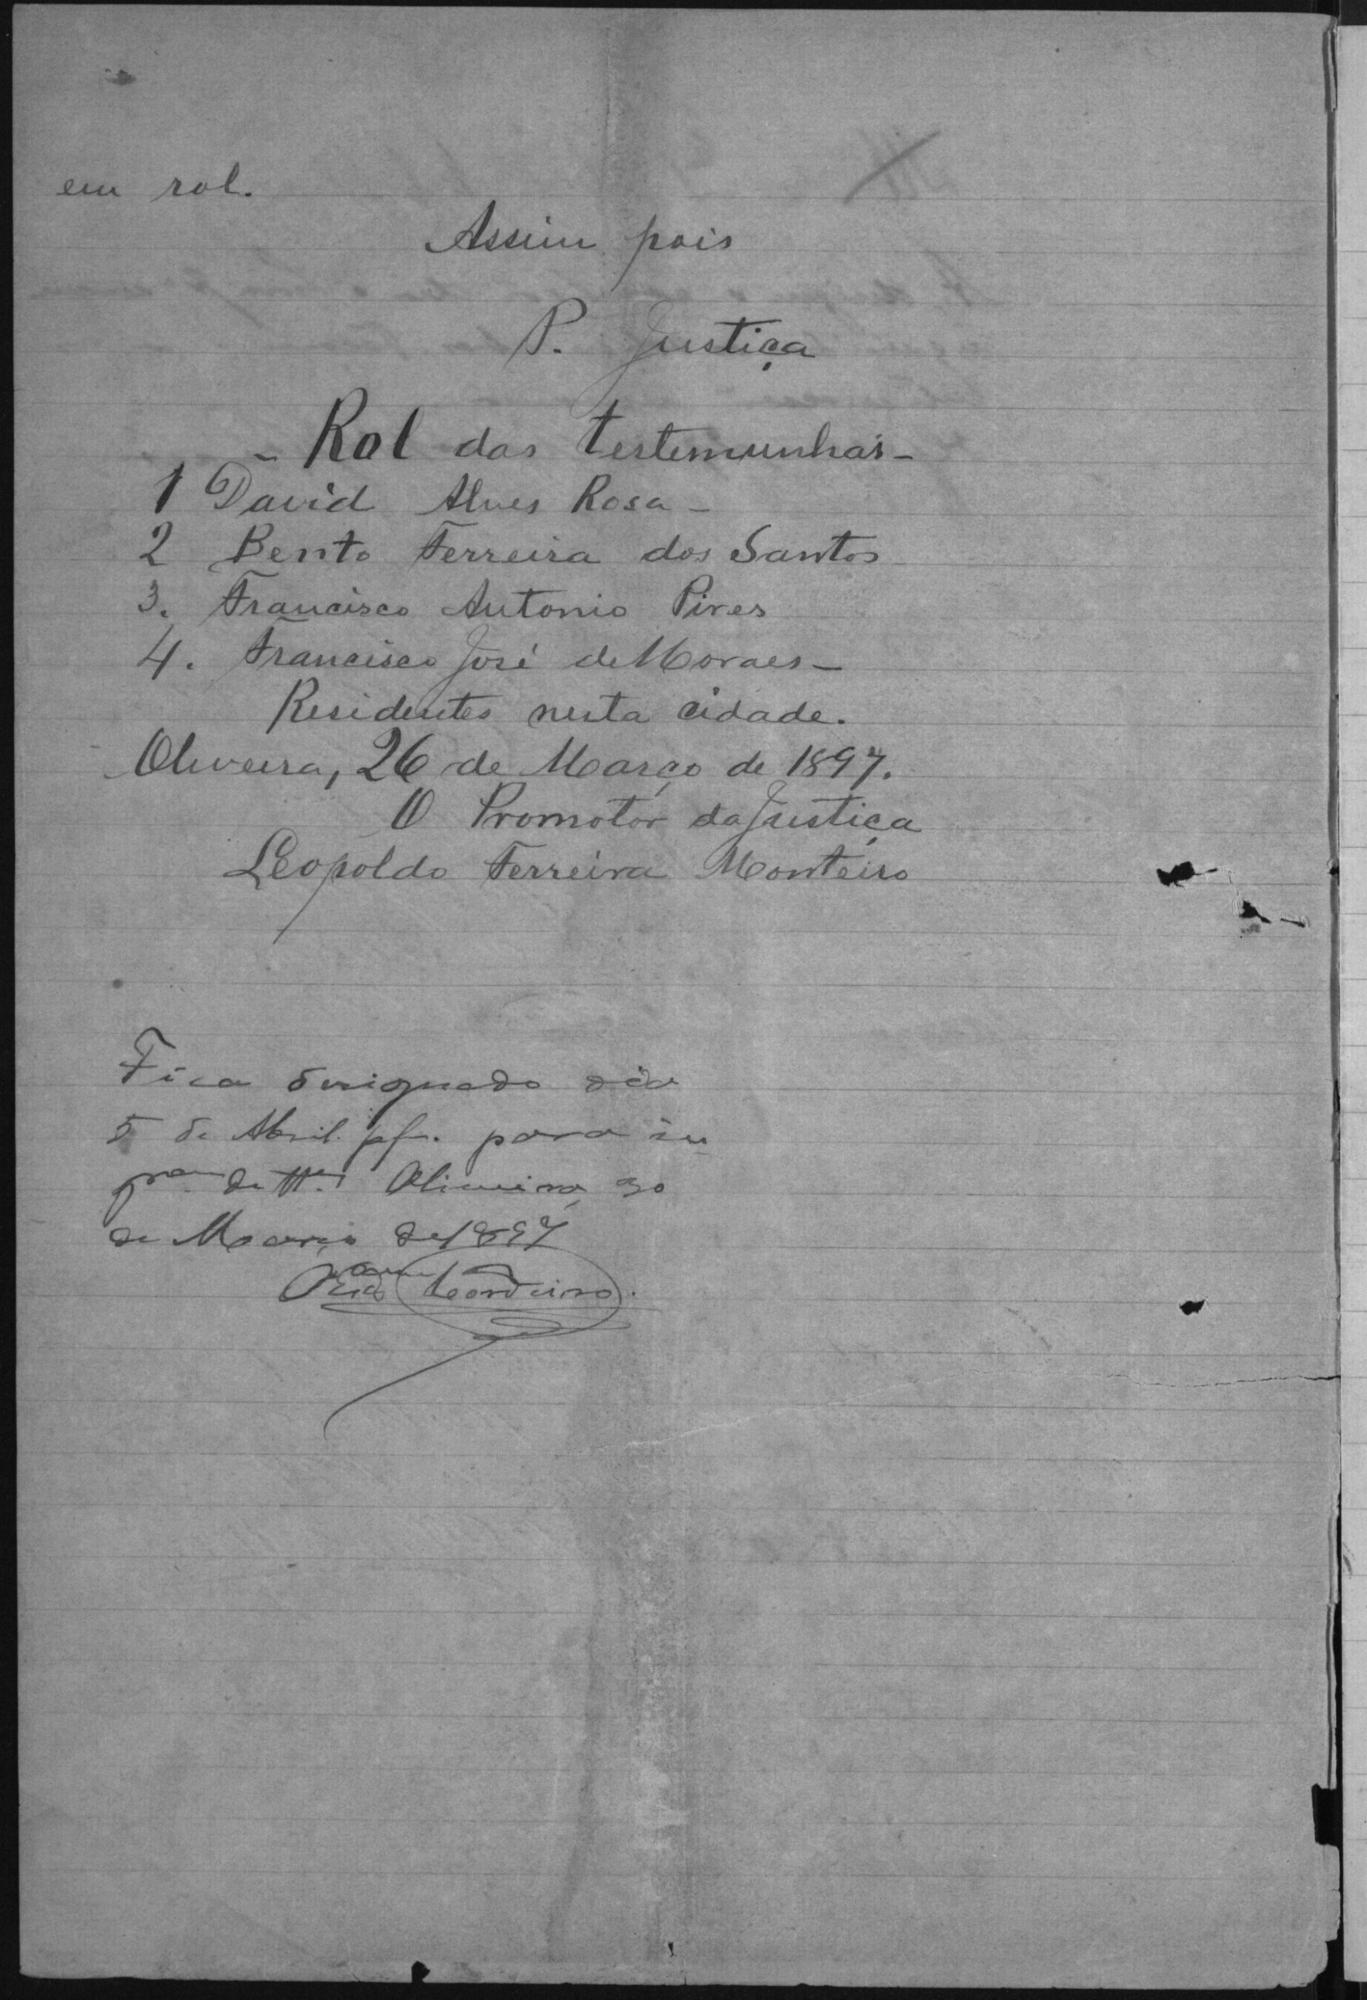 em rol.
Assim pois
P. Justiça
- Rol das testemunhas -
1 David Alves Rosa -
2 Bento Ferreira dos Santos
3. Francisco Antonio Pires
4. Francisco José de Moraes -
Residentes nesta cidade.
Oliveira, 26 de Março de 1897.
O Promotor da Justiça
Leopoldo Ferreira Monteiro
Fica designado dia
5 de Abril pf. para in
de tt.as Oliveira 30
de Março de 1897
Cordeiro.